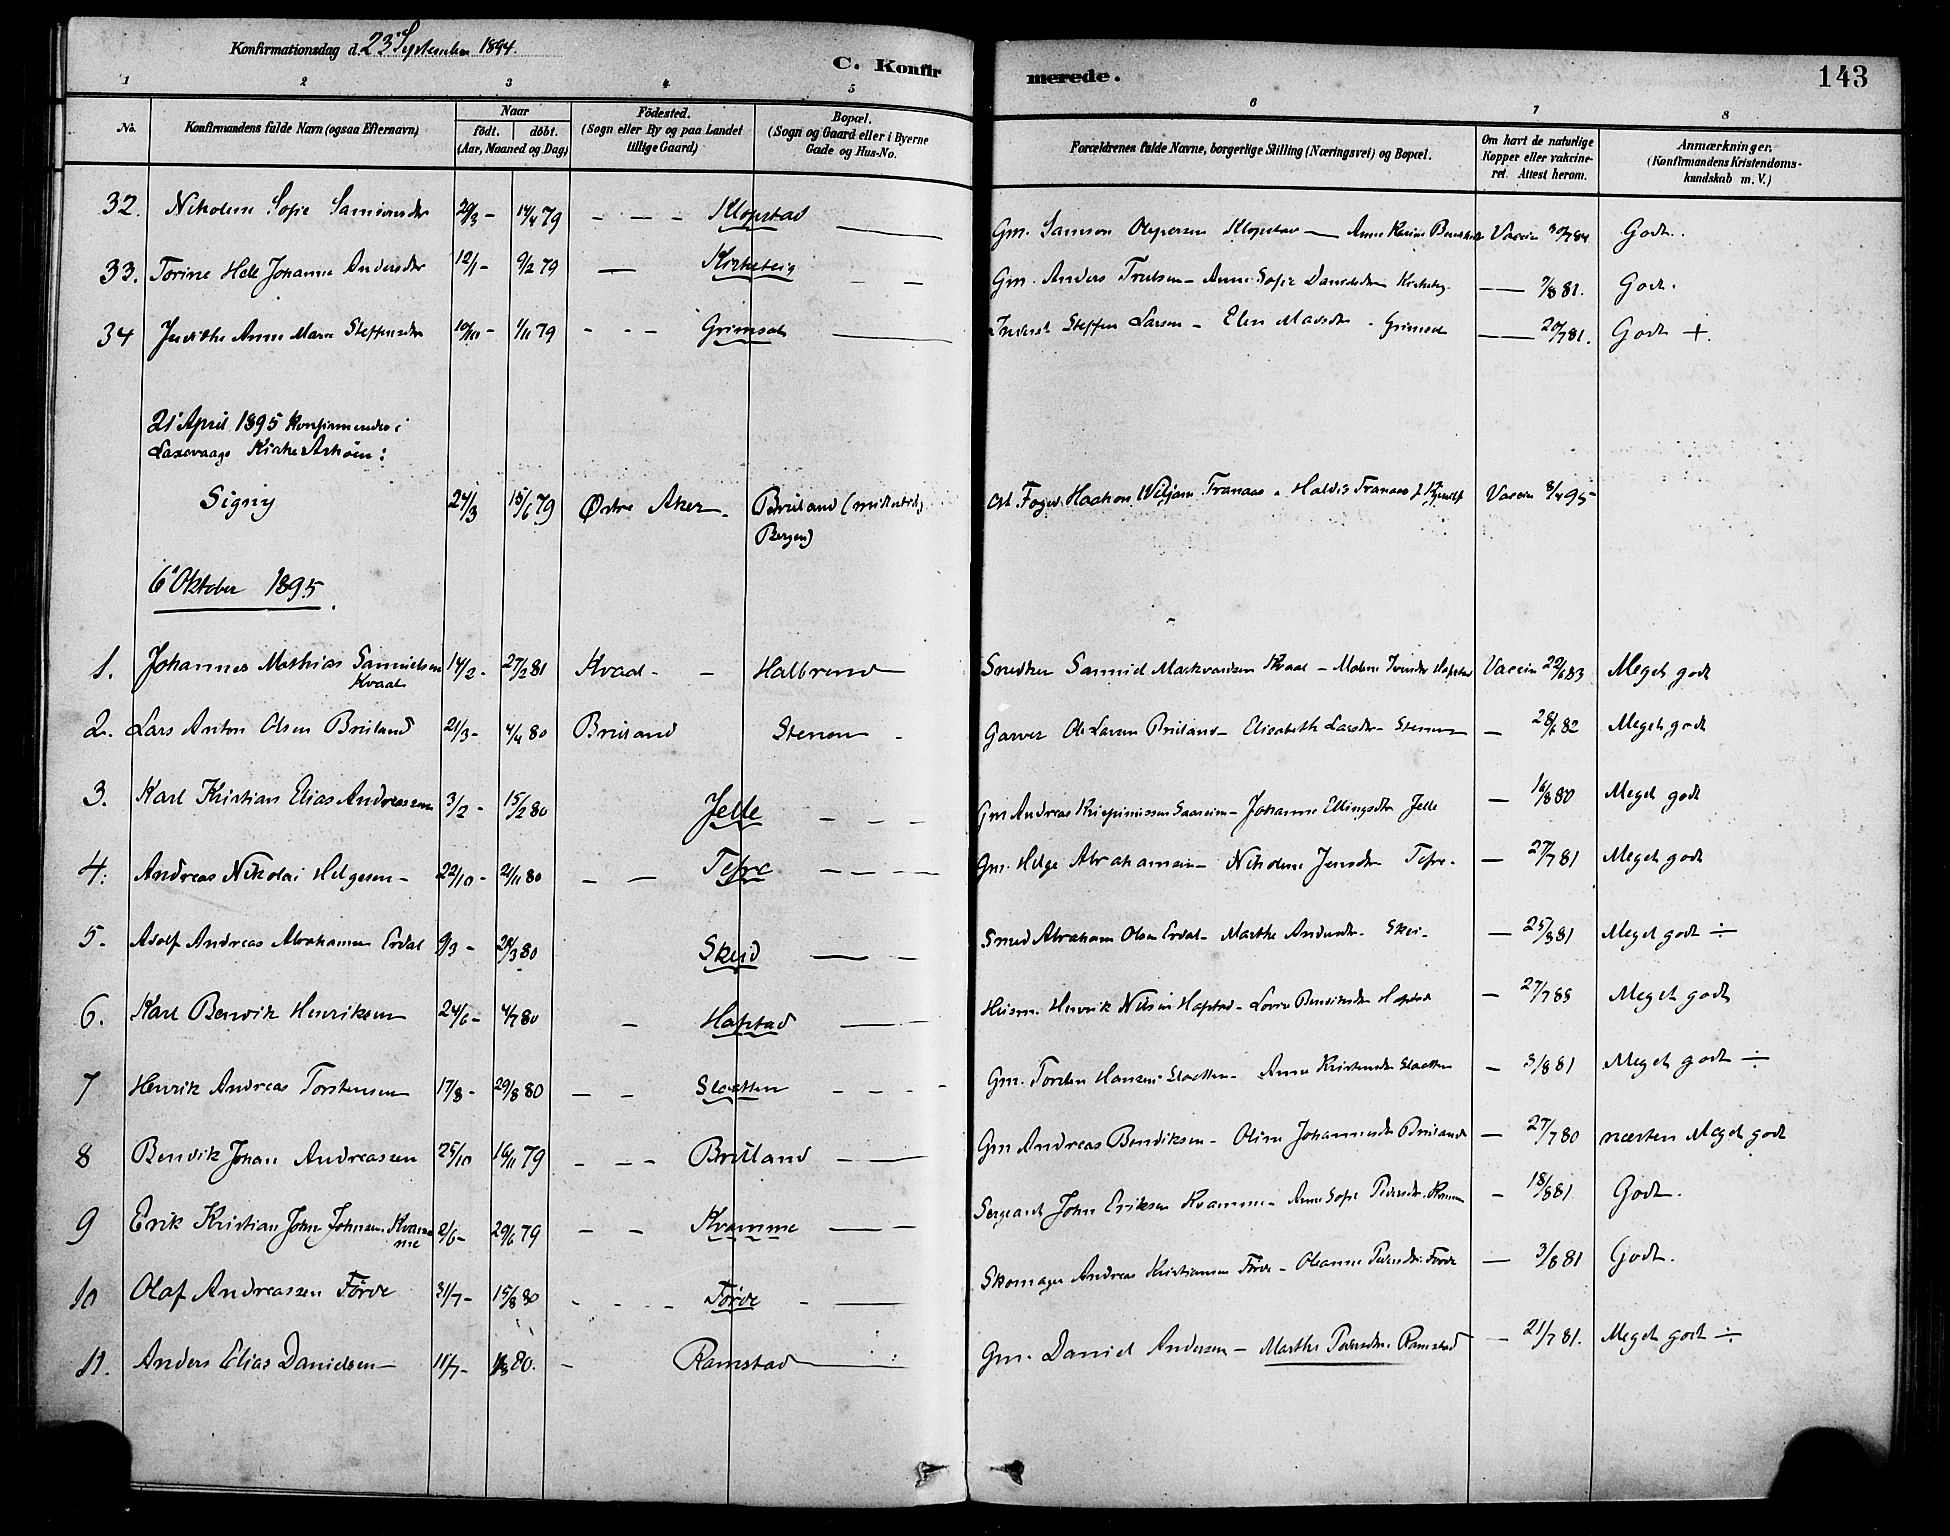 Konfirmationsdag d. 23 September 1894.
C. Konfirmerede.
143
1 2 3 4 5 6 7 8
No.
Konfirmandens fulde Navn (ogsaa Efternavn)
Naar
födt. | döbt.
(Aar, Maaned og Dag)
Födested.
(Sogn eller By og paa Landet
tillige Gaard)
Bopæl.
(Sogn og Gaard eller i Byerne
Gade og Hus-No.
Forældrenes fulde Navne, borgerlige Stilling (Næringsvei) og Bopæl.
Om havt de naturlige
Kopper eller vakcine-
ret. Attest herom.
Anmærkninger.
(Konfirmandens Kristendoms-
kundskab m. V.)
32. Nikoline Sofie Samsonsdtr 29/3 - 14/4 79 - - - Klopstad — Gm. Samson Klopstad — Anne Karine Vaccin 30/7 84 Godt.
33. Torine Johanne Andersdtr 12/1 - 9/2 79 — Kirketeig - - Gm. Anders Trulsen - Anne Sofie Danielsdtr — 7/8 81. Godt.
34 Judithe Anne Marie Steffensdtr 10/10 - 1/11 79 - - - Grimset — Steffen Larsen - Elen Madsdtr - Grimset — 20/7 81. Godt +.
21 April 1895 Konfirmeredes i
Laxevaags Kirke Askøen:
Signy 24/3 15/6 79 Østre Aker - Bruland (midlertid.
Bergen)
Foged Haakon Wiljam Tranaas - Haldis Tranaas f. Vaccin 8/4 95
6 Oktober 1895.
1. Johannes Mathias Samuelsen
Kvaal 14/2 - 27/2 81 Kvaal - - Halbrend Snedker Samuel Markvardsen Kvaal - Malene Vaccin 22/6 83 Meget godt
2. Lars Anton Olsen Bruland 21/3 - 4/4 80 Bruland Stenen - Garver Ole Larsen Bruland - Elisabeth Larsdtr - Stenen — 28/6 82 Meget godt
3. Karl Kristian Elias Andreassen 3/2 - 15/2 80 Jelle - - - Gm Andreas - Johanne Ellingsdtr Jelle — 16/8 80 Meget godt
4. Andreas Nikolai Helgesen - 22/10 - 21/11 80 - - Tefre - - - Gm. Helge Abrahamsen - Nikoline Jensdtr Tefre - — 27/7 81 Meget godt
5. Adolf Andreas Abrahamsen Erdal 9/3 - 28/3 80 Skeid — - Smed Abraham Olsen Erdal - Marthe Andersdtr - Skei - — 25/8 81 Meget godt ÷
6. Karl Benvik Henriksen 24/6 - 4/7 80 - Hafstad — - Husm. Henrik Nilsen Hafstad - Hafstad — 27/7 85 Meget godt
7 Henrik Andreas Torstensen 17/8 - 29/8 80 - - Slaatten - - - Gm. Torsten Hansen Slaatten - Anne Kristensdtr Slaatten — 3/8 81 Meget godt ÷
8 Bendik Johan Andreassen 25/10 16/11 79 - - - Bruland - — Gm Andreas Bendiksen - Oline Johannesdtr Bruland — 27/7 80 næsten Meget godt
9 Erik Kristian John Johnsen Kvam-
me 2/6 - 29/6 79 - - Kvamme — - Sergeant John Eriksen Kvamme - Anne Sofie Pedersdtr. - 18/8 81 Godt.
10 Olaf Andreassen Förde 31/7 - 15/8 80 - - - - Förde - — Skomager Andreas Kristiansen Förde - Oleanne Pedersdtr. Förde — 3/8 81 Godt.
11. Anders Elias Danielsen - 11/7 - 80. - Ramstad — Gm. Daniel Andersen - Marthe Pedersdtr Ramstad — 21/7 81. Meget godt ÷